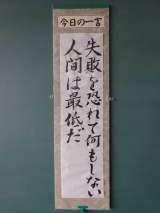 今日の一言
失敗を恐れて何もしない
人間は最低だ